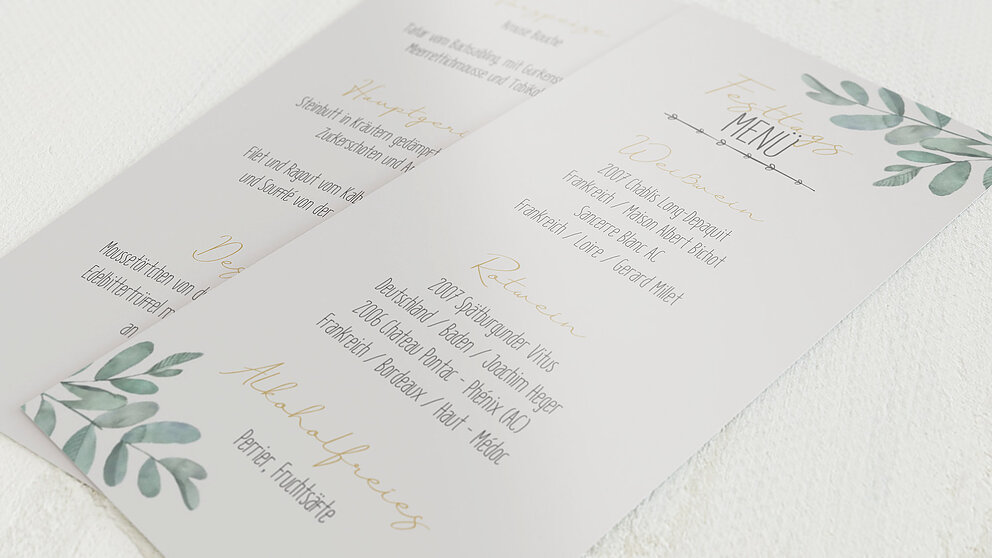 Amuse Bouche
Tatar vom Bachsaibling, mit Gurkens
Meerrettichmousse und Tobiko
Hauptger
Steinbutt in Kräutern gedämpft
Zuckerschoten und
Filet und Ragout vom Kalb
und Soufflé von der
Des
Moussetörtchen von
Edelbittertrüffel
an
Festtags
MENÜ
Weißwein
2007 Chablis Long-Depaquit
Frankreich / Maison Albert Bichot
Sancerre Blanc AC
Frankreich / Loire / Gerard Millet
Rotwein
2007 Spätburgunder Vitus
Deutschland / Baden / Joachim Heger
2006 Chateau Pontac - Phénix (AC)
Frankreich / Bordeaux / Haut - Médoc
Alkoholfreies
Perrier, Fruchtsäfte